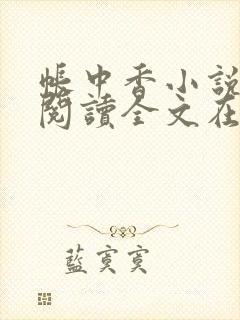 帳中香小說
閱讀全文在
藍寞寞